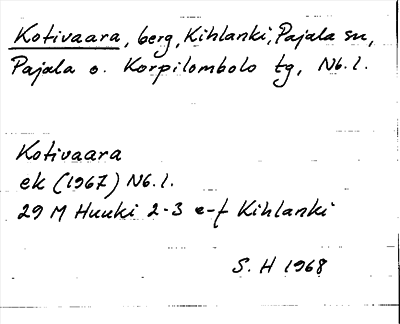 Kotivaara, berg, Kihlanki, Pajala sn,
Pajala o. Korpilombolo tg, Nb. l.
Kotivaara
ek (1967) Nb. l.
29 M Huuki 2-3 e-f Kihlanki
S. H 1968